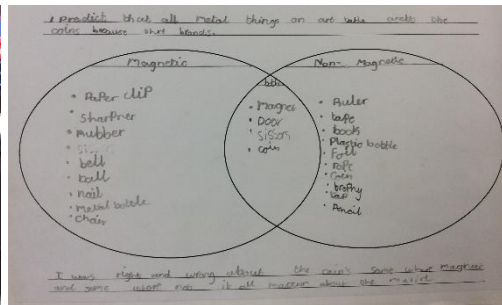 I predict that all metal things on are table the
coins because
Magnetic
Non-Magnetic
both
• Paper clip
• Sharpner
• Rubber
• bell
• ball
• nail
• Metal bottle
• Chair
• Magnet
• Door
• Sissors
• coin
• Ruler
• tape
• book
• Plastic bottle
• Foil
• rope
• Coin
• trophy
• Pencil
I was right and wrong about the coin's some whwr magnetic
and some not it all matters about the